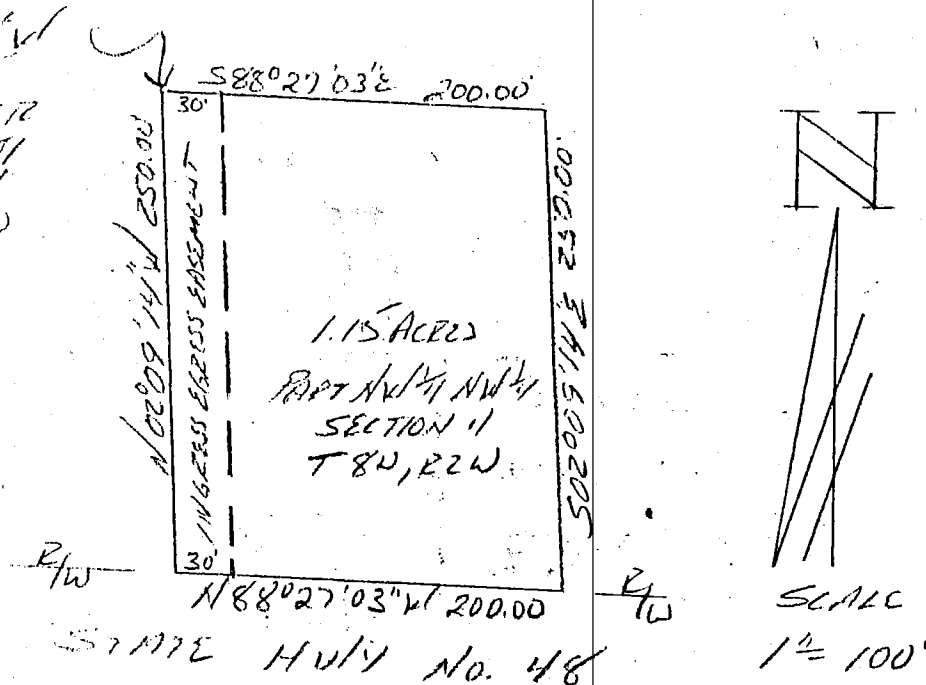 S88°27'03"E 200.00'
30'
N02°09'14"W 250.00
INGRESS EGRESS EASEMENT
S02°09'14"E 250.00'
1.15 ACRES
PART NW 1/4 NW 1/4
SECTION 11
T 8N, R2W
30'
R/W
N88°27'03"W 200.00
R/W
STATE HWY No. 48
N
SCALE
1" = 100'